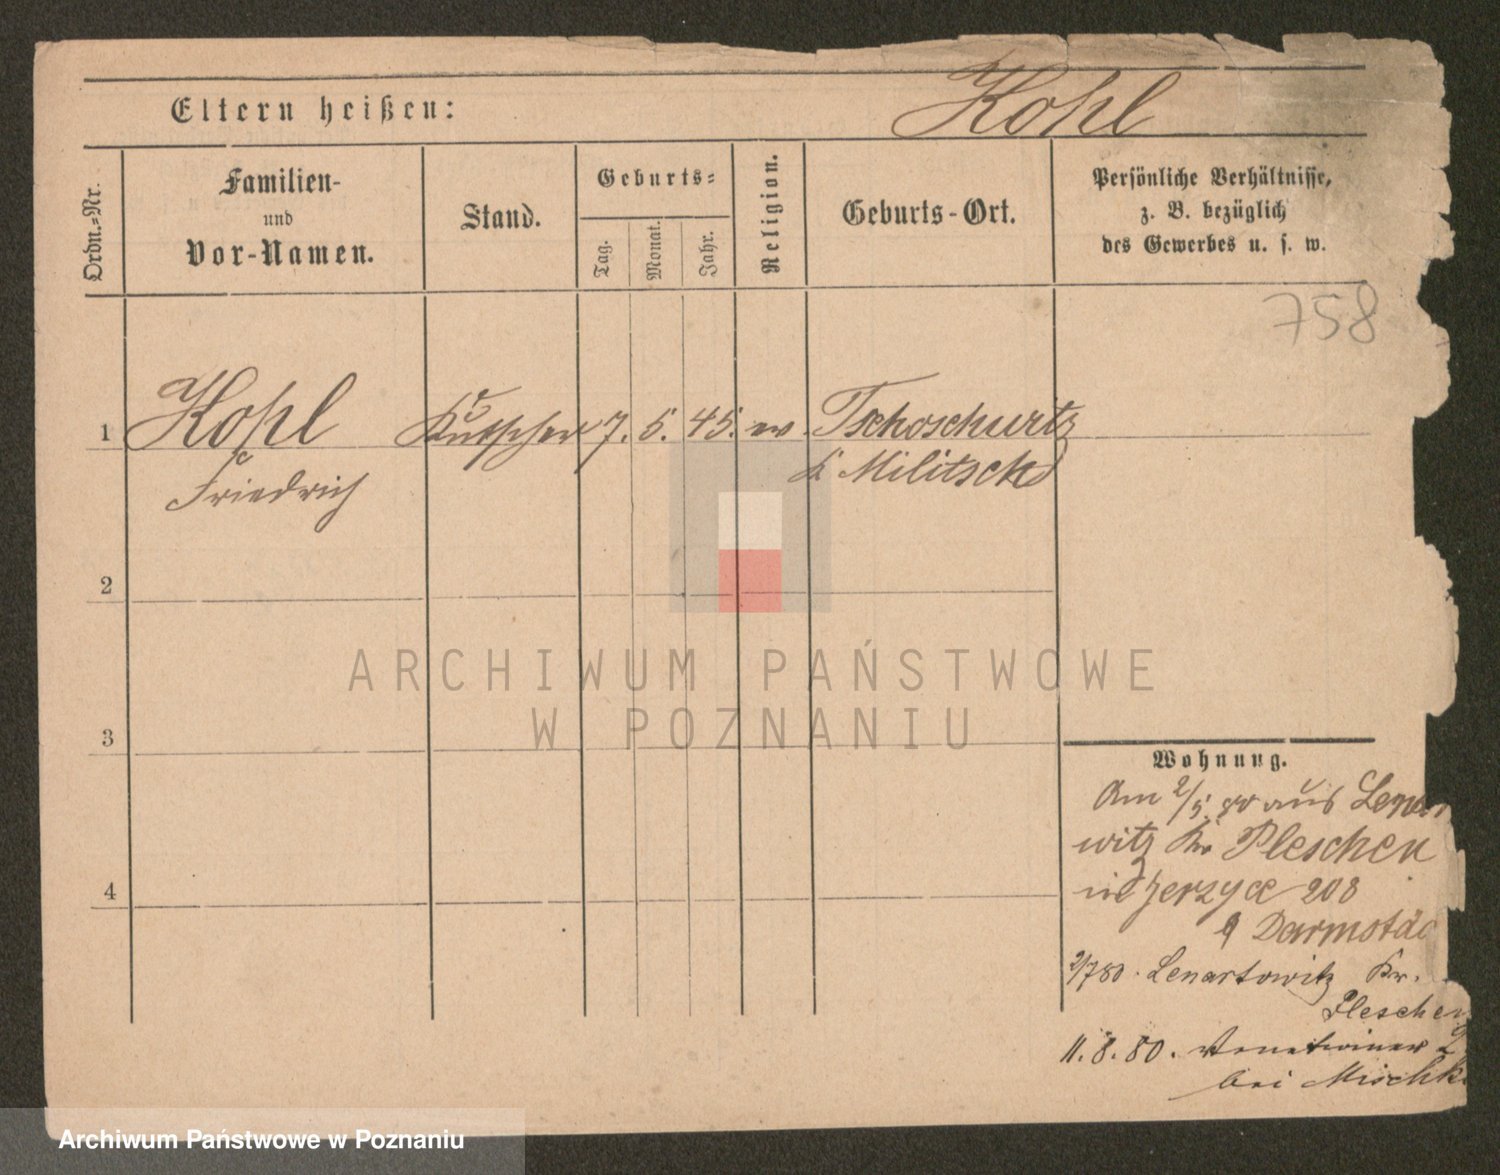 Eltern heißen:
Kohl
Ordn.-Nr.
Familien-
und
Vor-Namen.
Stand.
Geburts-
Tag.
Monat.
Jahr.
Religion.
Geburts-Ort.
Persönliche Verhältnisse,
z. B. bezüglich
des Gewerbes u. s. w.
758
1 Kohl Kutscher 7. 5. 45. ev. Tschoschurtz
Friedrich
K Militsch
2
3
4
ARCHIWUM PAŃSTWOWE
W POZNANIU
Wohnung.
Am 2/5. 80 aus
witz Kr Pleschen
Jerzyce 208
Darmstäd
2/7 80. Lenartowitz Kr.
Pleschen
11. 8. 80.
bei Mischk
Archiwum Państwowe w Poznaniu